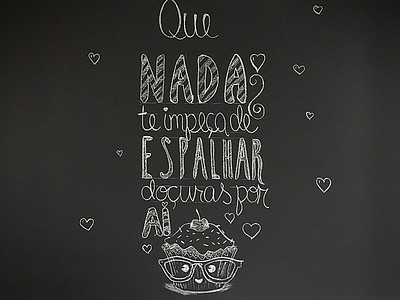 Que
NADA
te impeça de
ESPALHAR
doçuras por
AÍ